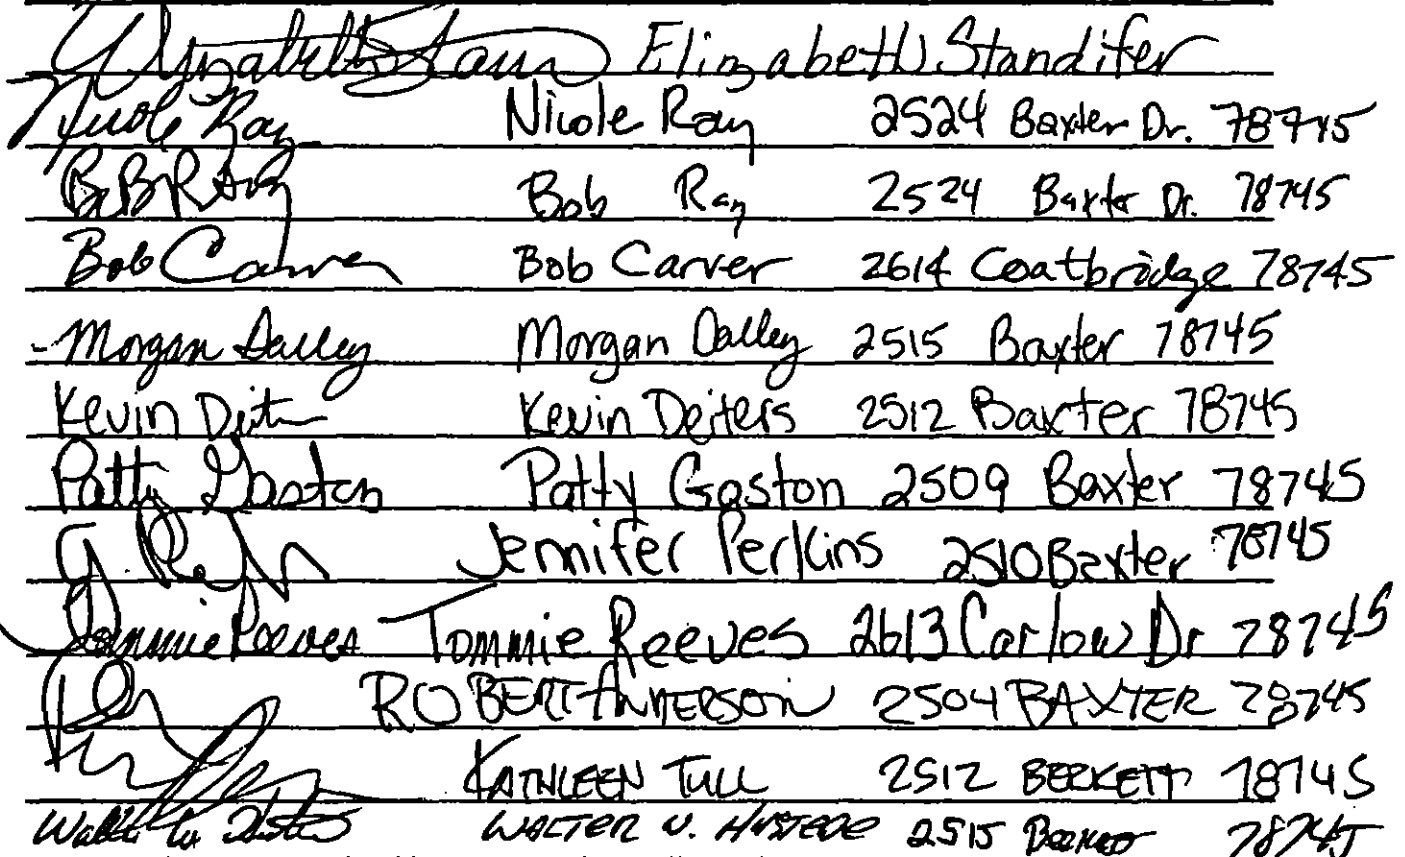 Elizabeth Stan Elizabeth Standifer
Nicole Ray Nicole Ray 2524 Baxter Dr. 78745
Bob Ray Bob Ray 2524 Baxter Dr. 78745
Bob Carver Bob Carver 2614 Coatbridge 78745
Morgan Dalley Morgan Dalley 2515 Baxter 78745
Kevin Deit Kevin Deiters 2512 Baxter 78745
Patty Gaston Patty Gaston 2509 Baxter 78745
Jennifer Perkins 2510 Baxter 78745
Tommie Reeves Tommie Reeves 2613 Carlow Dr 78745
ROBERT ANDERSON 2504 BAXTER 78745
KATHLEEN TULL 2512 BECKETT 78745
Walter W. WALTER W. HUSTEDE 2515 78745